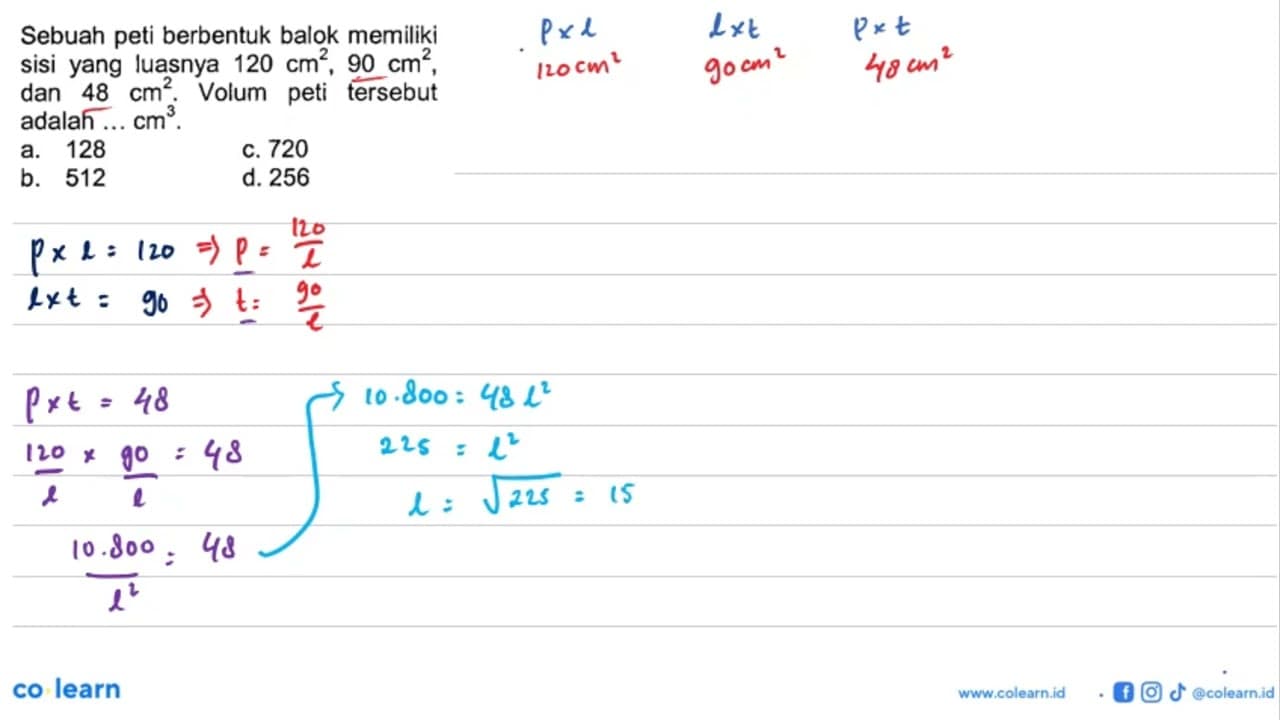 Sebuah peti berbentuk balok memiliki
sisi yang luasnya 120 cm², 90 cm²,
dan 48 cm². Volum peti tersebut
adalah ... cm³.
a. 128 c. 720
b. 512 d. 256
p x l l x t p x t
120 cm² 90 cm² 48 cm²
p x l = 120 => p = 120/l
l x t = 90 => t = 90/l
p x t = 48
120/l x 90/l = 48
10.800/l² = 48
10.800 = 48 l²
225 = l²
l = √225 = 15
co learn
www.colearn.id @colearn.id